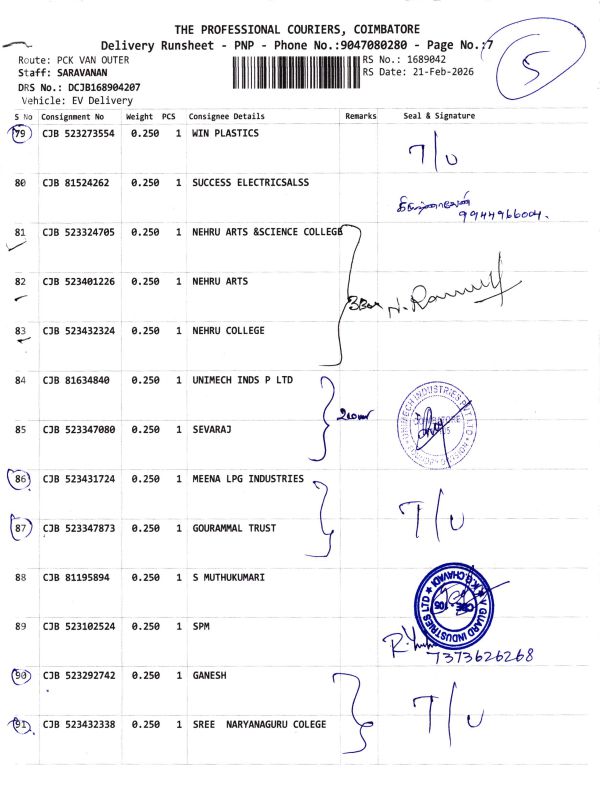 THE PROFESSIONAL COURIERS, COIMBATORE
Delivery Runsheet - PNP - Phone No.:9047080280 - Page No.:7
5
Route: PCK VAN OUTER
RS No.: 1689042
Staff: SARAVANAN
RS Date: 21-Feb-2026
DRS No.: DCJB168904207
Vehicle: EV Delivery
S No Consignment No Weight PCS Consignee Details Remarks Seal & Signature
79 CJB 523273554 0.250 1 WIN PLASTICS
T/U
80 CJB 81524262 0.250 1 SUCCESS ELECTRICSALSS
9944966004.
81 CJB 523324705 0.250 1 NEHRU ARTS &SCIENCE COLLEGE
82 CJB 523401226 0.250 1 NEHRU ARTS
83 CJB 523432324 0.250 1 NEHRU COLLEGE
84 CJB 81634840 0.250 1 UNIMECH INDS P LTD
85 CJB 523347080 0.250 1 SEVARAJ
86 CJB 523431724 0.250 1 MEENA LPG INDUSTRIES
T/U
87 CJB 523347873 0.250 1 GOURAMMAL TRUST
88 CJB 81195894 0.250 1 S MUTHUKUMARI
V GUARD INDUSTRIES LTD ★ K.G.CHAVADI ★
CBE - 105
89 CJB 523102524 0.250 1 SPM
7373626268
90 CJB 523292742 0.250 1 GANESH
T/U
91 CJB 523432338 0.250 1 SREE NARYANAGURU COLEGE